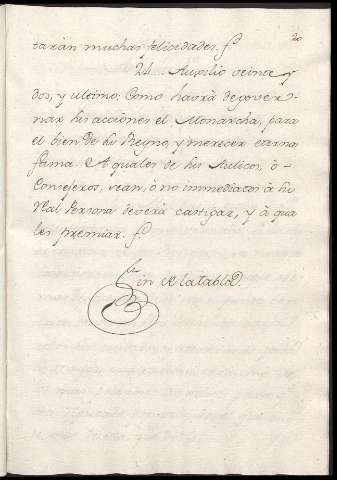 20
taràn muchas felicidades. f.
24 Auxilio veinte y
dos, y ultimo: Como havrà de gover-
nar sus acciones el Monarcha, para
el bien de su Reyno, y merecer eterna
fama. A quales de sus Aulicos, ò
Consejeros, sean, ò no immediatos à su
Real Persona deverà castigar, y à qua
les premiar. f.
Fin de la tabla.